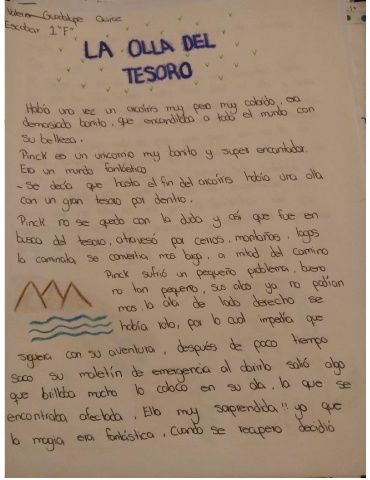 Guadalupe
Escobar 1 "F"
LA OLLA DEL
TESORO
Había una vez un arcoíris muy pero muy colorido, era
demasiado bonito, que encandilaba a todo el mundo con
su belleza.
Pinck es un unicornio muy bonito y super encantador.
Era un mundo fantástico
- Se decía que hasta el fin del arcoíris había una olla
con un gran tesoro por dentro.
Pinck no se quedo con la duda y así que fue en
busca del tesoro, atravesó por cerros, montañas, lagos
la caminata se convertia mas larga, a mitad del camino
Pinck sufrió un pequeño problema, bueno
no tan pequeño, sus alas ya no podían
mas, la ala de lado derecho se
había roto, por lo cual impedía que
siguiera con su aventura, después de poco tiempo
saco su maletín de emergencia al abrirlo salió algo
que brillaba mucho lo coloco en su ala, la que se
encontraba afectada, Ella muy sorprendida!! ya que
la magia era fantástica, Cuando se recupero decidió